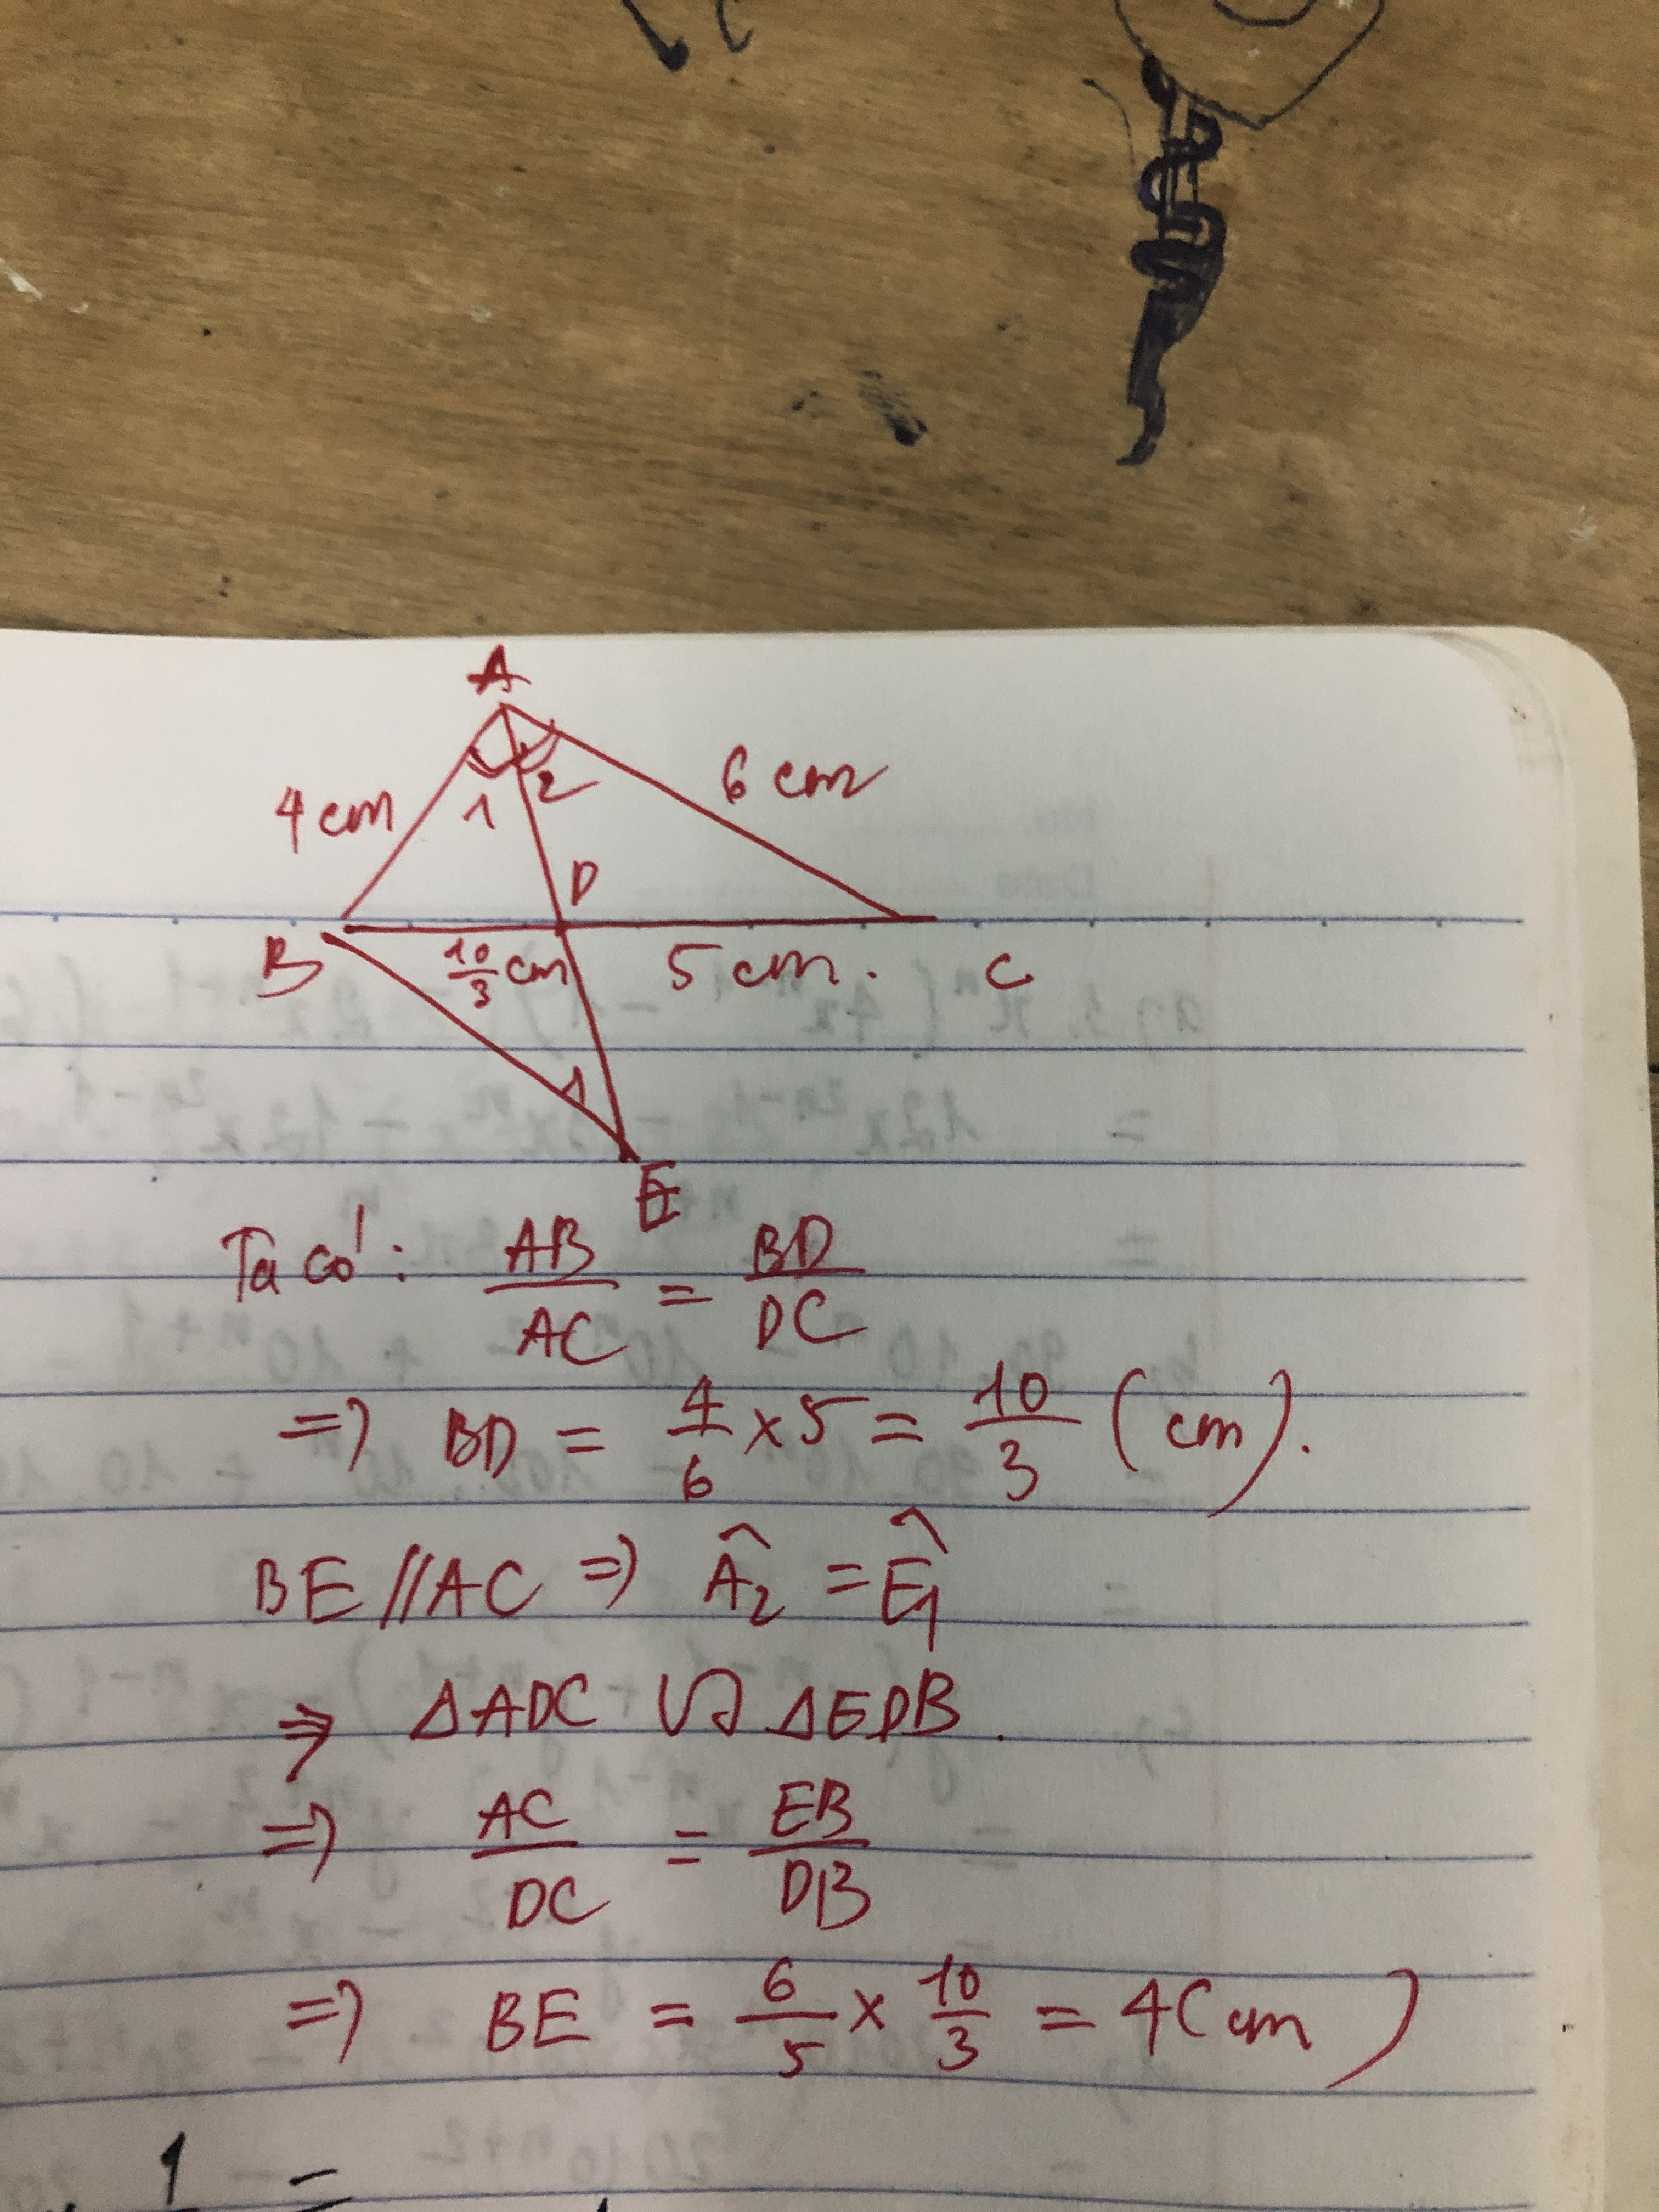 A
4 cm
6 cm
1 2
D
B
10/3 cm
5 cm.
C
1
E
Ta có: AB/AC = BD/DC
=> BD = 4/6 x 5 = 10/3 (cm).
BE // AC => Â₂ = Ê₁
=> ΔADC ᔕ ΔEDB.
=> AC/DC = EB/DB
=> BE = 6/5 x 10/3 = 4 (cm)